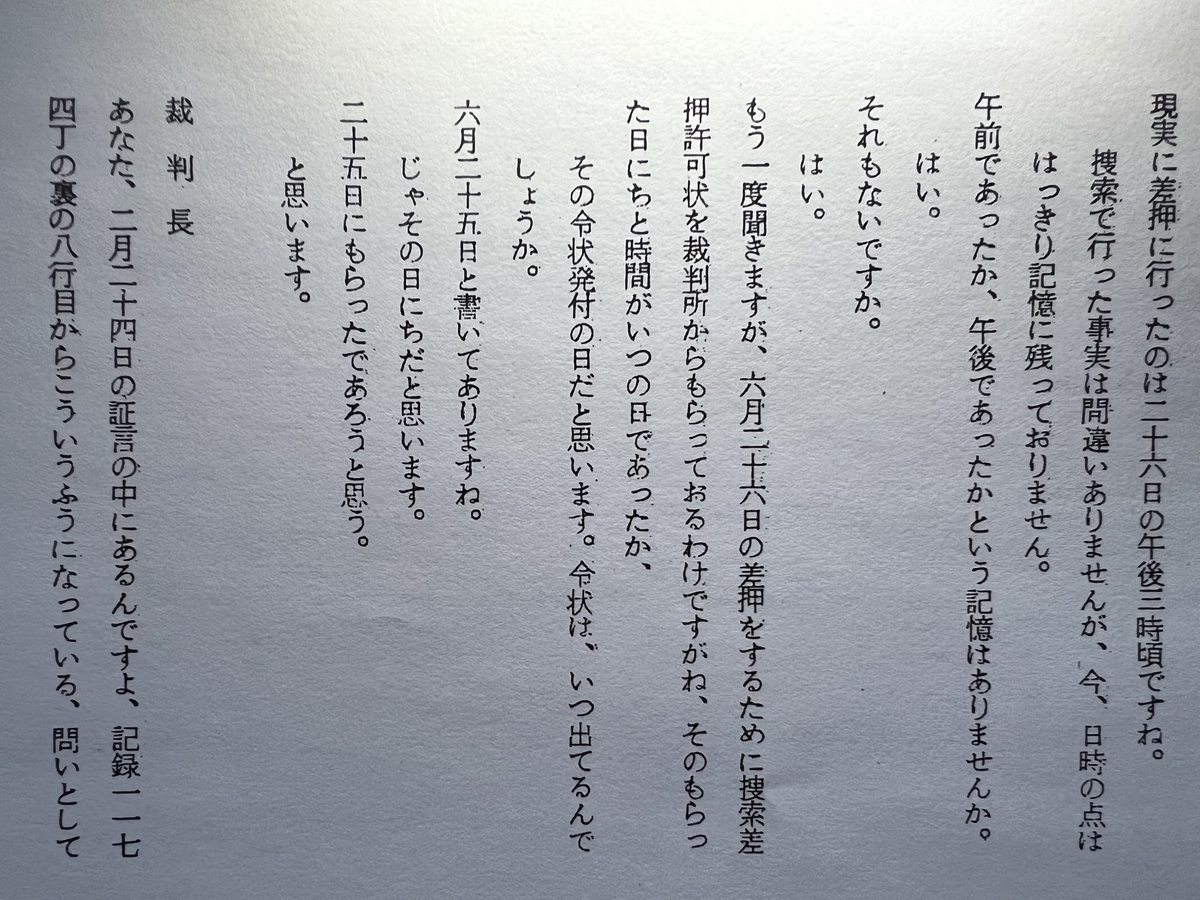 現実に差押に行ったのは二十六日の午後三時頃ですね。
捜索で行った事実は間違いありませんが、今、日時の点は
はっきり記憶に残っておりません。
午前であったか、午後であったかという記憶はありませんか。
はい。
それもないですか。
はい。
もう一度聞きますが、六月二十六日の差押をするために捜索差
押許可状を裁判所からもらっておるわけですがね、そのもらっ
た日にちと時間がいつの日であったか、
その令状発付の日だと思います。令状は、いつ出てるんで
しょうか。
六月二十五日と書いてありますね。
じゃその日にちだと思います。
二十五日にもらったであろうと思う。
と思います。
裁判長
あなた、二月二十四日の証言の中にあるんですよ、記録一一七
四丁の裏の八行目からこういうふうになっている、問いとして